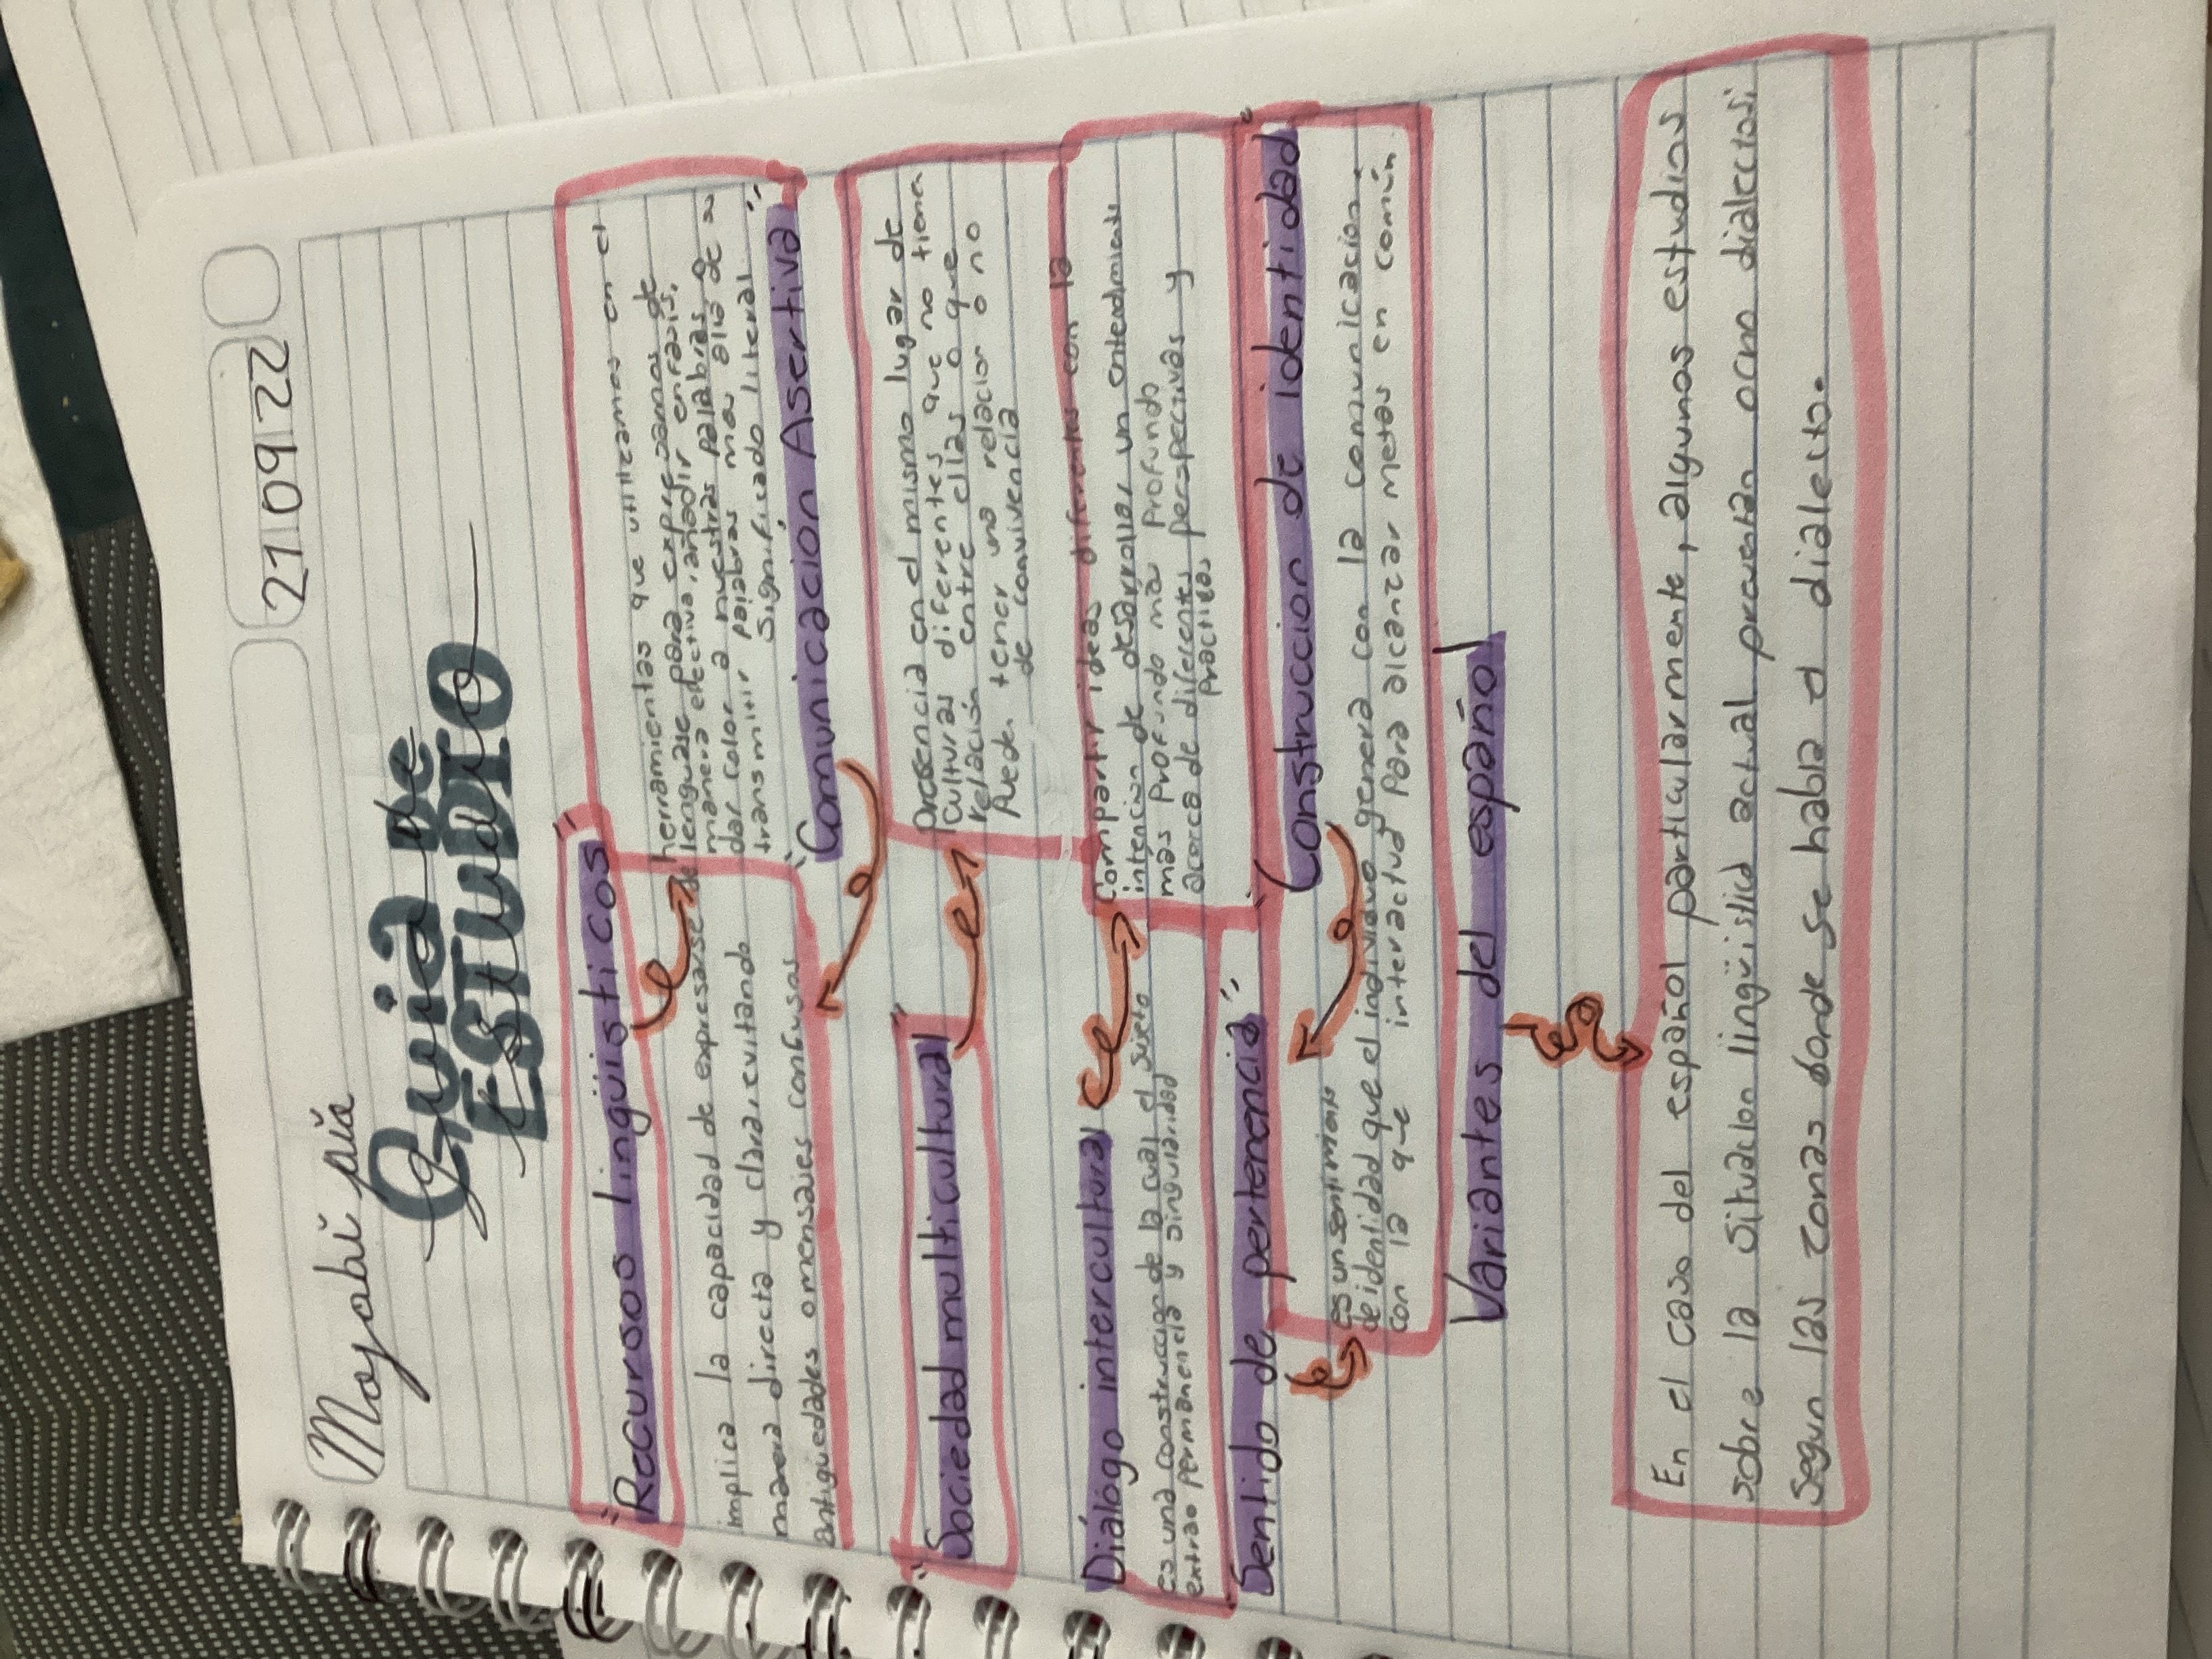 21 09 22
Mayabí pía
Guia de
Estudio
"Recursos lingüisticos"
herramientas que utilizamos en el
lenguaje para expresarnos de
manera efectiva, añadir enfasis,
dar color a nuestras palabras o
transmitir palabras mas alla de
significado literal
implica la capacidad de expresarse de
manera directa y clara, evitando
antiguedades o mensajes confusos
"Comunicacion Asertiva"
"Sociedad multicultural"
presencia en el mismo lugar de
culturas diferentes que no tienen
relación entre ellas o que
pueden tener una relacion o no
de convivencia
Diálogo intercultural
Compartir ideas diferentes con la
intencion de desarrollar un entendimiento
mas profundo mas profundo
acerca de diferentes perspectivas y
practicas
es una construccion de la cual el sujeto
permanencia y singularidad
Sentido de pertenencia"
"Construccion de identidad"
es un sentimiento
de identidad que el individuo genera con la comunicacion,
con la que interactua para alcanzar metas en común
Variantes del español
En el caso del español particularmente, algunos estudios
sobre la situacion lingüistica actual presentan ocho dialectos;
segun las zonas donde se habla el dialecto.